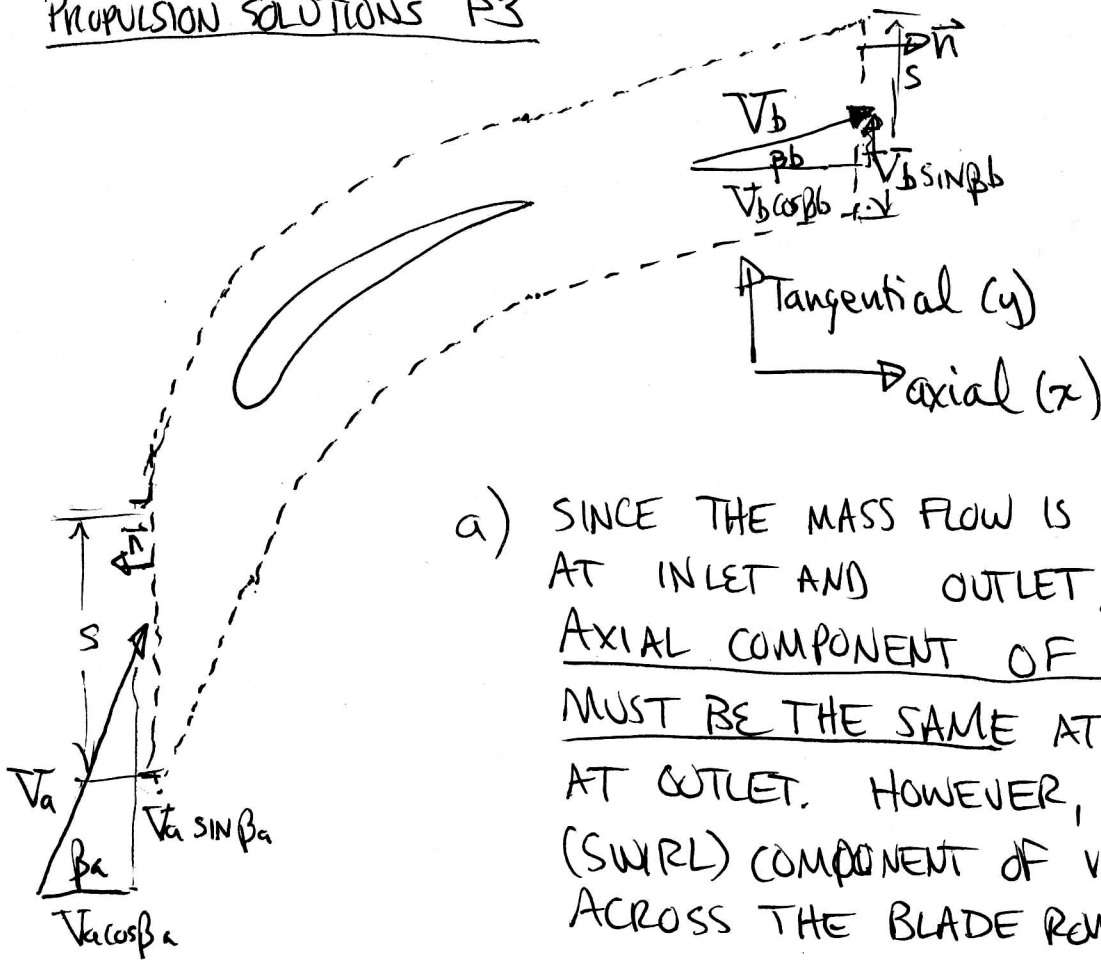 PROPULSION SOLUTIONS P3
n
s
Vb
βb
Vb SINβb
Vb cosβb
Tangential (y)
axial (x)
n
s
a) SINCE THE MASS FLOW IS
AT INLET AND OUTLET,
AXIAL COMPONENT OF
MUST BE THE SAME AT
AT OUTLET. HOWEVER,
(SWIRL) COMPONENT OF V
ACROSS THE BLADE ROW
Va
Va SINβa
βa
Va cosβa